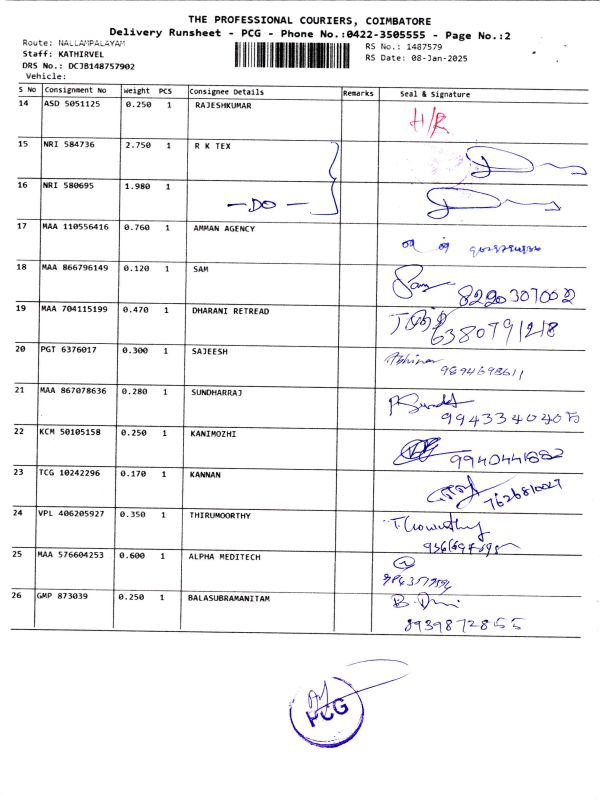 THE PROFESSIONAL COURIERS, COIMBATORE
Delivery Runsheet - PCG - Phone No.:0422-3505555 - Page No.:2
Route: NALLAMPALAYAM
RS No.: 1487579
Staff: KATHIRVEL
RS Date: 08-Jan-2025
DRS No.: DCJB148757902
Vehicle:
S No Consignment No Weight PCS Consignee Details Remarks Seal & Signature
14 ASD 5051125 0.250 1 RAJESHKUMAR H/R
15 NRI 584736 2.750 1 R K TEX
16 NRI 580695 1.980 1 —DO—
17 MAA 110556416 0.760 1 AMMAN AGENCY
18 MAA 866796149 0.120 1 SAM Sam
8220307002
19 MAA 704115199 0.470 1 DHARANI RETREAD
6380791218
20 PGT 6376017 0.300 1 SAJEESH
9894698611
21 MAA 867078636 0.280 1 SUNDHARRAJ
9943340405
22 KCM 50105158 0.250 1 KANIMOZHI
9940441882
23 TCG 10242296 0.170 1 KANNAN
7626810027
24 VPL 406205927 0.350 1 THIRUMOORTHY
25 MAA 576604253 0.600 1 ALPHA MEDITECH
26 GMP 873039 0.250 1 BALASUBRAMANITAM
8939872855
PCG